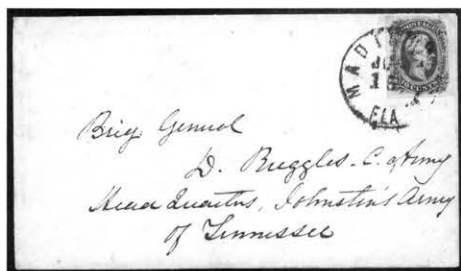 MADI
FLA
Brig General
D. Ruggles - C. S. Army
Head Quarters, Johnston's Army
of Tennessee